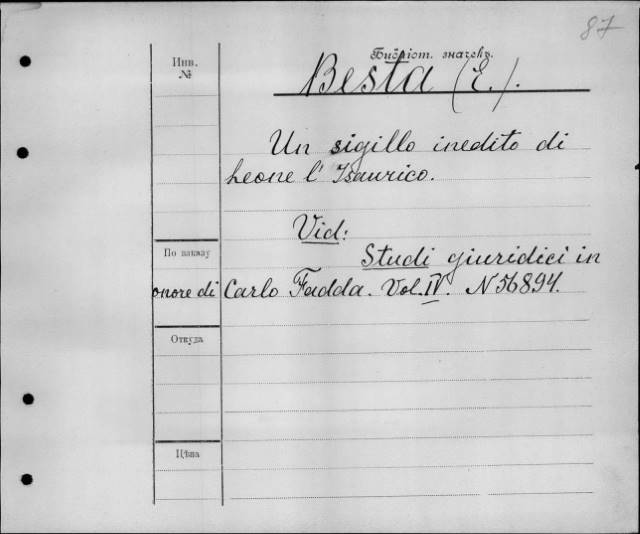 87
Инв.
№
Библіот. значекъ.
Besta (E.).
Un sigillo inedito di
Leone l' Isaurico.
Vid:
По заказу
Studi giuridici in
onore di Carlo Fadda. Vol. IV. N 56894.
Откуда
Цѣна